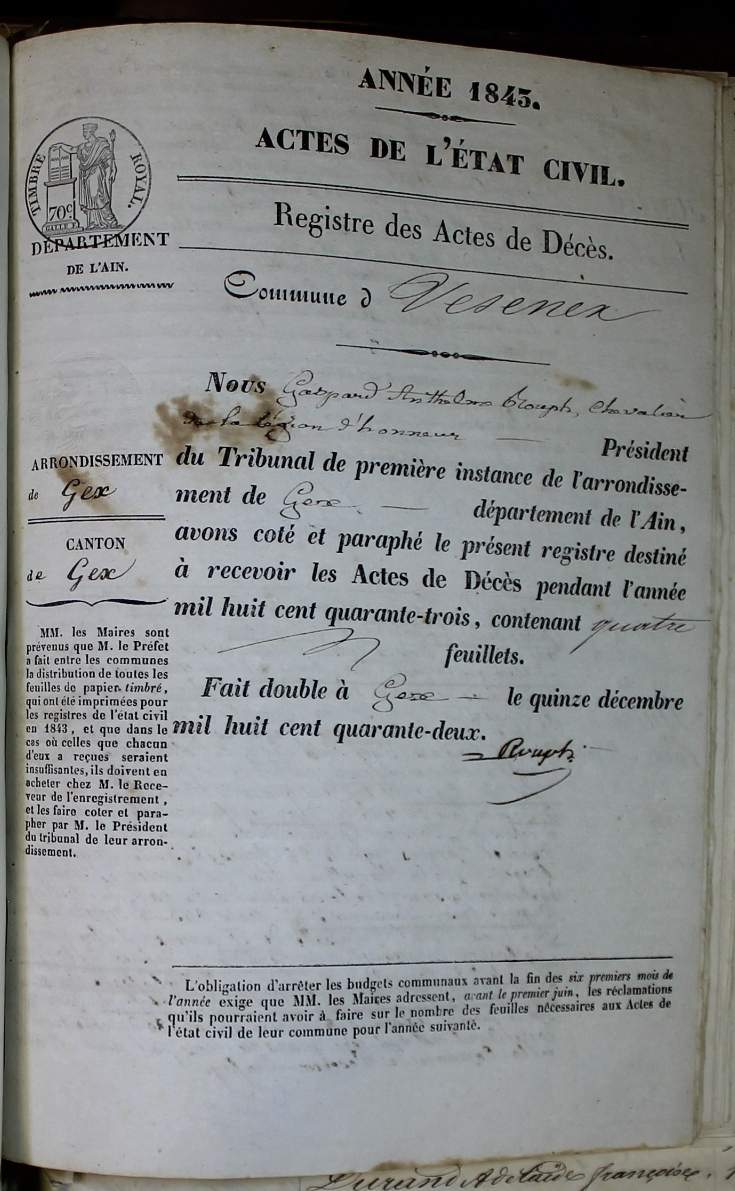 ANNÉE 1843.
ACTES DE L'ÉTAT CIVIL.
TIMBRE ROYAL.
70c
DÉPARTEMENT
DE L'AIN.
Registre des Actes de Décès.
Commune d Vesenex
Nous Gaspard Anthelme Rouph, chevalier
de la légion d'honneur — Président
du Tribunal de première instance de l'arrondisse-
ment de Gex — département de l'Ain,
avons coté et paraphé le présent registre destiné
à recevoir les Actes de Décès pendant l'année
mil huit cent quarante-trois, contenant quatre
feuillets.
Fait double à Gex — le quinze décembre
mil huit cent quarante-deux.
Rouph
ARRONDISSEMENT
de Gex
CANTON
de Gex
MM. les Maires sont
prévenus que M. le Préfet
a fait entre les communes
la distribution de toutes les
feuilles de papier timbré,
qui ont été imprimées pour
les registres de l'état civil
en 1843, et que dans le
cas où celles que chacun
d'eux a reçues seraient
insuffisantes, ils doivent en
acheter chez M. le Rece-
veur de l'enregistrement,
et les faire coter et para-
pher par M. le Président
du tribunal de leur arron-
dissement.
L'obligation d'arrêter les budgets communaux avant la fin des six premiers mois de
l'année exige que MM. les Maires adressent, avant le premier juin, les réclamations
qu'ils pourraient avoir à faire sur le nombre des feuilles nécessaires aux Actes de
l'état civil de leur commune pour l'année suivante.
Durand Adelaïde françoise.